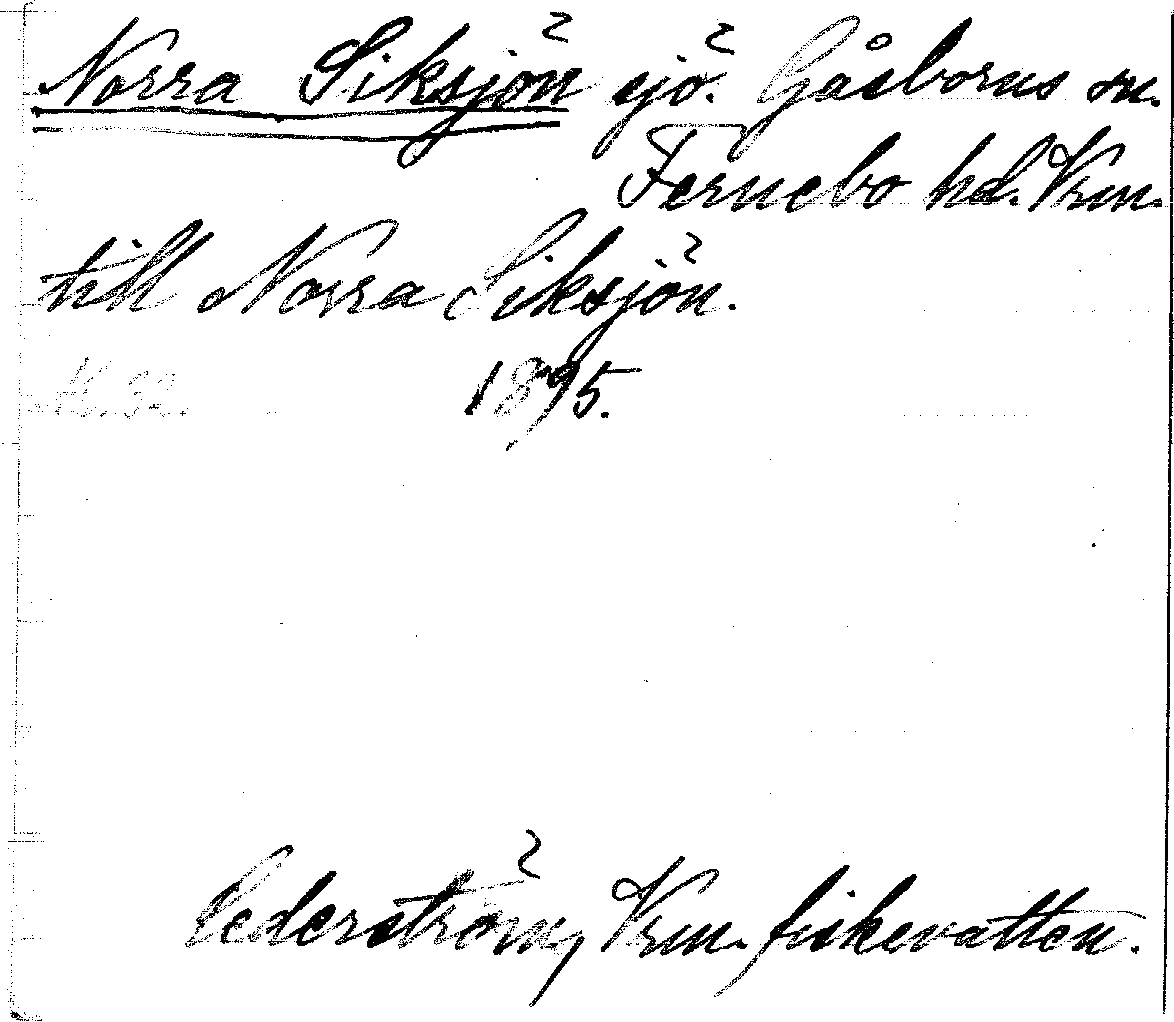 Norra Siksjön sjö. Gåsborns sn.
Fernebo hd. Vrm.
till Norra Siksjön.
1895.
Cederström, Vrm. fiskevatten.